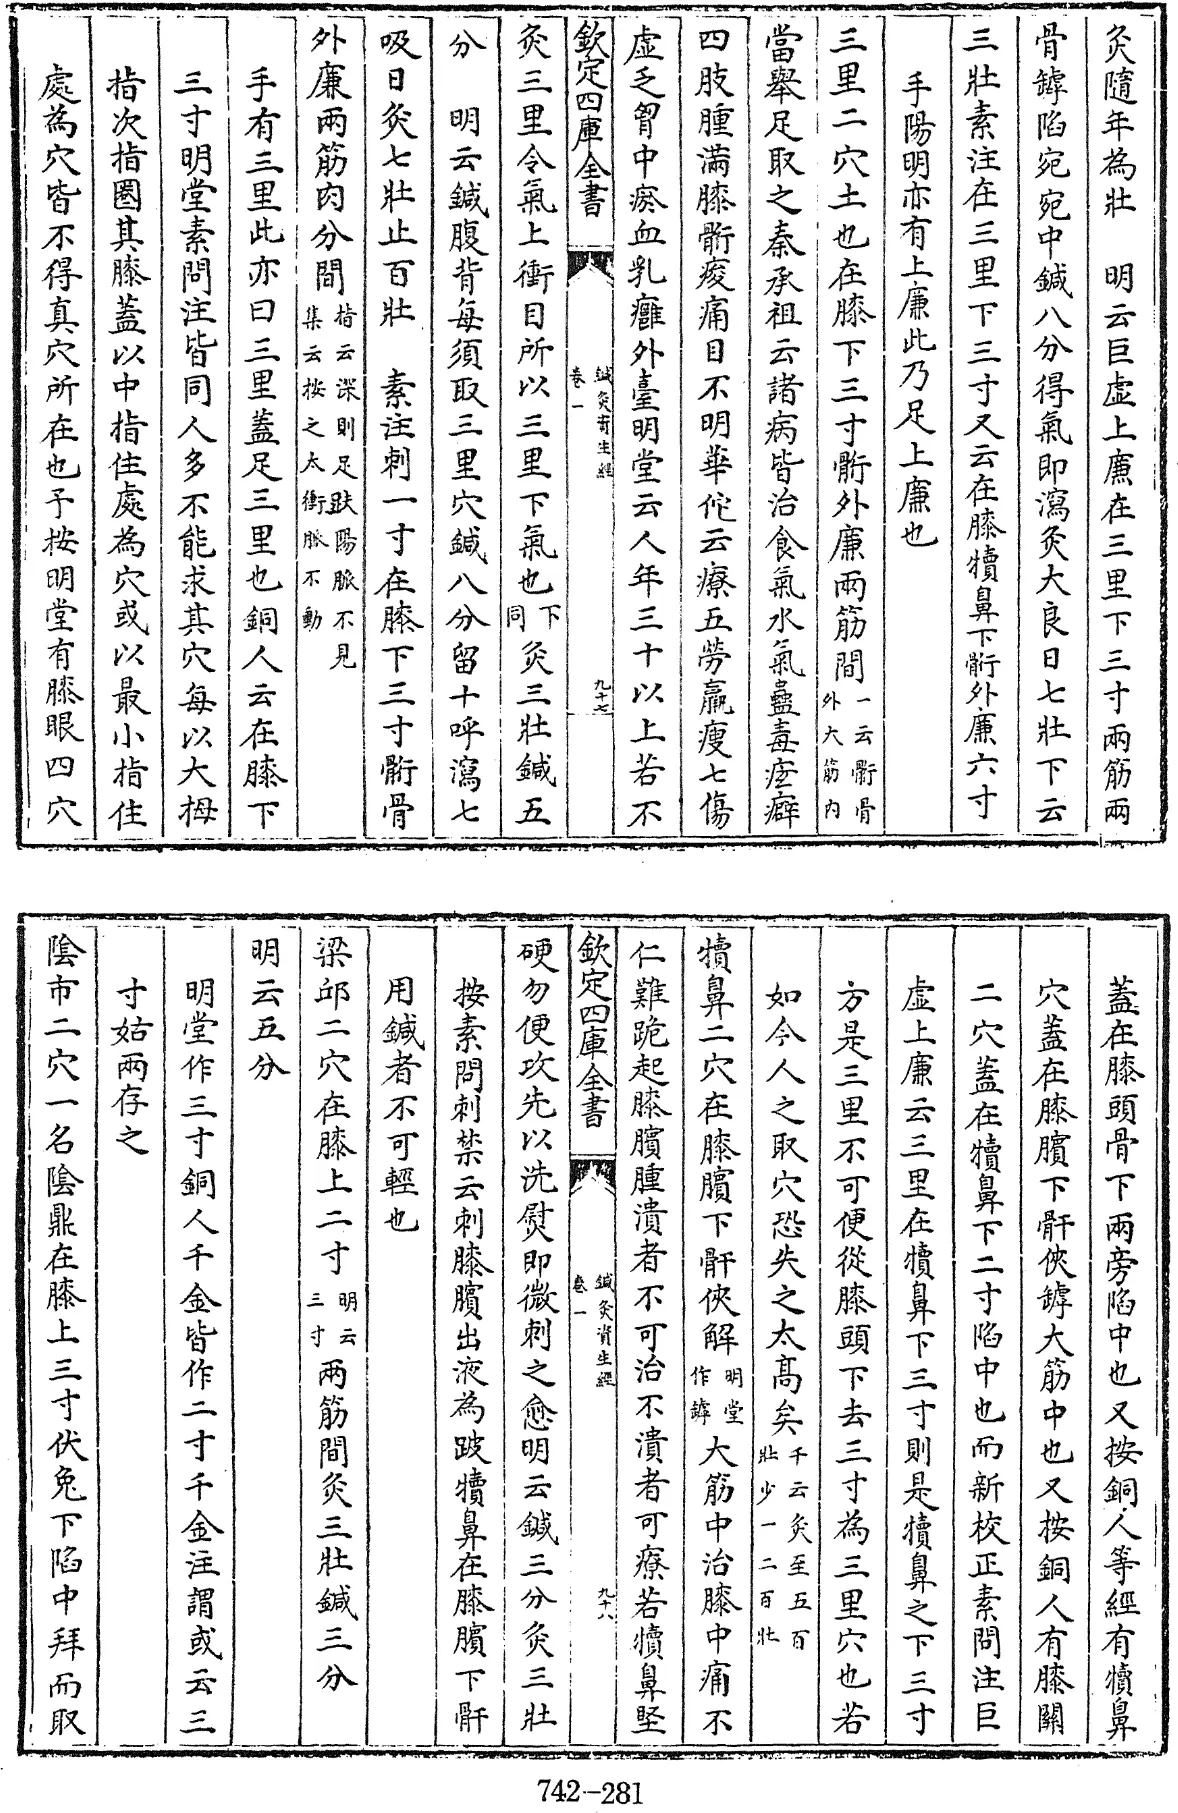 灸隨年為壯　明云巨虛上廉在三里下三寸兩筋兩
骨罅陷宛宛中鍼八分得氣即瀉灸大良日七壯下云
三壯素注在三里下三寸又云在膝犢鼻下䯒外廉六寸
手陽明亦有上廉此乃足上廉也
三里二穴土也在膝下三寸䯒外廉兩筋間一云䯒骨外大筋内
當舉足取之秦承祖云諸病皆治食氣水氣蠱毒痃癖
四肢腫滿膝䯒痠痛目不明華佗云療五勞羸瘦七傷
虛乏胷中瘀血乳癰外臺明堂云人年三十以上若不
欽定四庫全書
鍼灸資生經
卷一
九十七
灸三里令氣上衝目所以三里下氣也下同灸三壯鍼五
分　明云鍼腹背每須取三里穴鍼八分留十呼瀉七
吸日灸七壯止百壯　素注刺一寸在膝下三寸䯒骨
外廉兩筋肉分間指云深則足趺陽脈不見集云按之太衝脈不動
手有三里此亦曰三里蓋足三里也銅人云在膝下
三寸明堂素問注皆同人多不能求其穴每以大拇
指次指圈其膝蓋以中指住處為穴或以最小指住
處為穴皆不得真穴所在也予按明堂有膝眼四穴
蓋在膝頭骨下兩旁陷中也又按銅人等經有犢鼻
穴蓋在膝臏下骭俠罅大筋中也又按銅人有膝關
二穴蓋在犢鼻下二寸陷中也而新校正素問注巨
虛上廉云三里在犢鼻下三寸則是犢鼻之下三寸
方是三里不可便從膝頭下去三寸為三里穴也若
如今人之取穴恐失之太高矣千云灸至五百壯少一二百壯
犢鼻二穴在膝臏下骭俠解明堂作罅大筋中治膝中痛不
仁難跪起膝臏腫潰者不可治不潰者可療若犢鼻堅
欽定四庫全書
鍼灸資生經
卷一
九十八
硬勿便攻先以洗熨即微刺之愈明云鍼三分灸三壯
按素問刺禁云刺膝臏出液為跛犢鼻在膝臏下骭
用鍼者不可輕也
梁邱二穴在膝上二寸明云三寸兩筋間灸三壯鍼三分
明云五分
明堂作三寸銅人千金皆作二寸千金注謂或云三
寸姑兩存之
陰市二穴一名陰鼎在膝上三寸伏兔下陷中拜而取
742-281